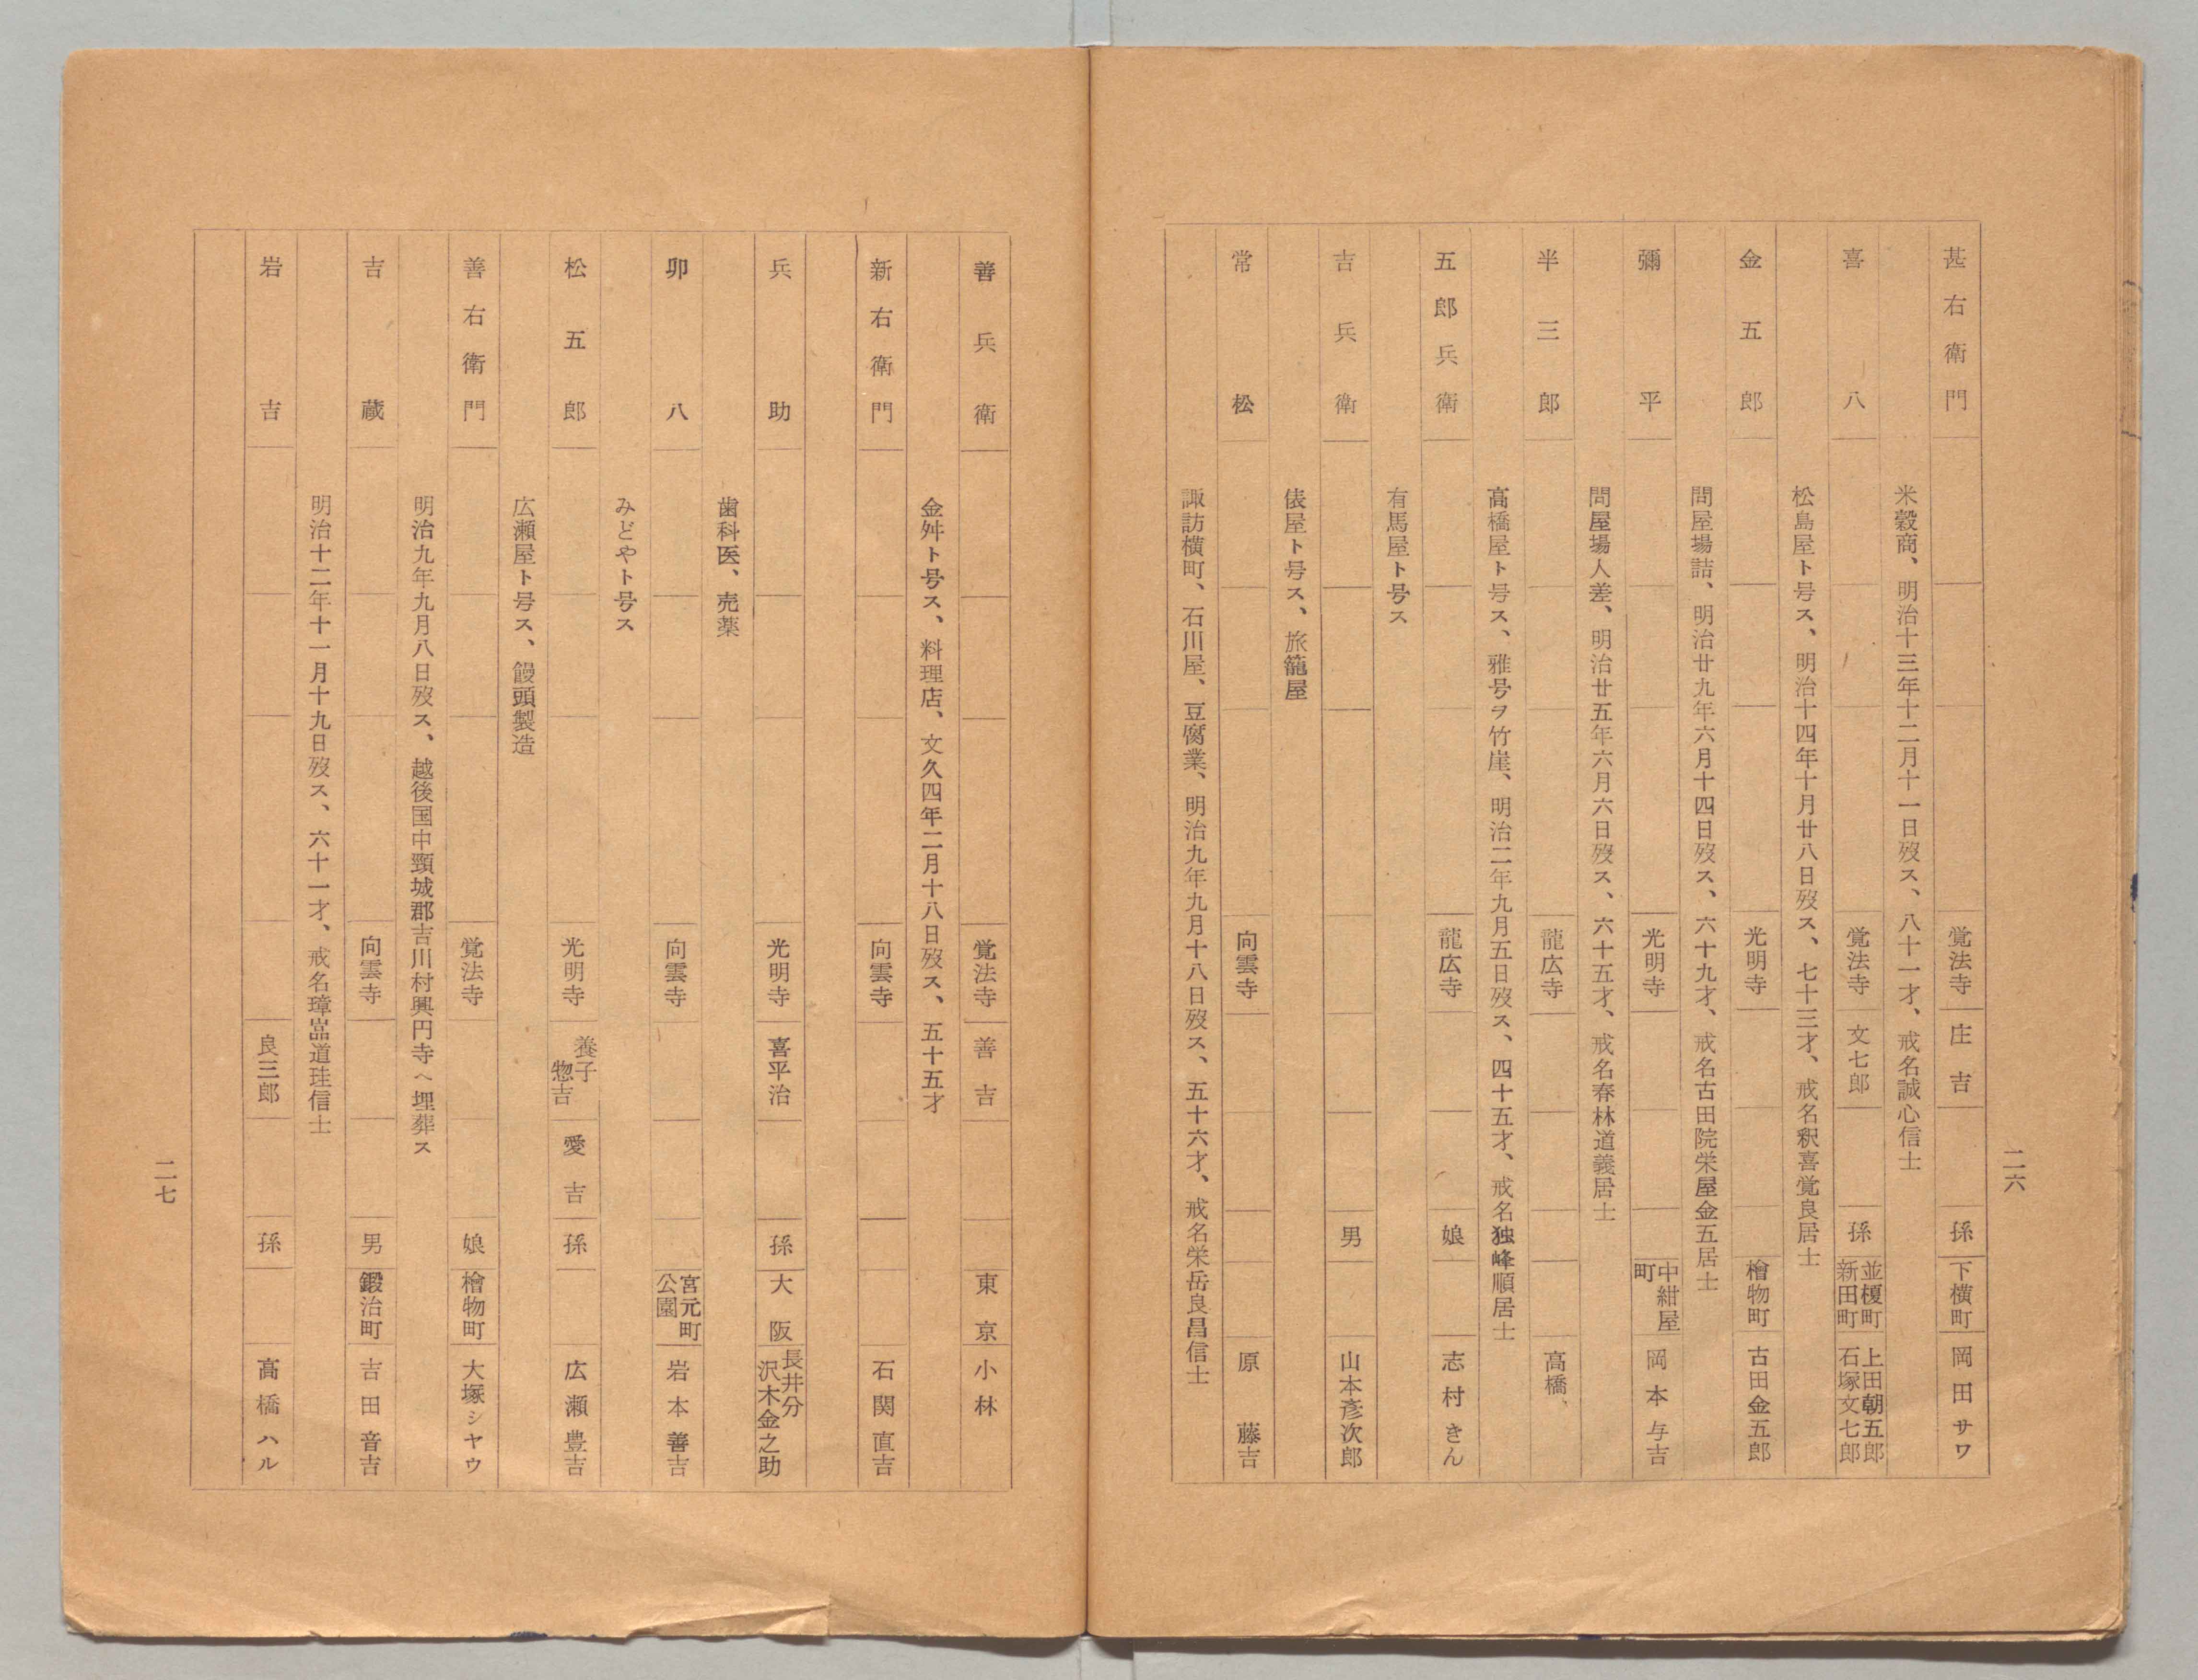 甚右衛門 覚法寺 庄吉 孫 下横町 岡田サワ
米穀商、明治十三年十二月十一日歿ス、八十一才、戒名誠心信士
喜八 覚法寺 文七郎 孫 並榎町 新田町 上田朝五郎 石塚文七郎
松島屋ト号ス、明治十四年十月廿八日歿ス、七十三才、戒名釈喜覚良居士
金五郎 光明寺 檜物町 古田金五郎
問屋場詰、明治廿九年六月十四日歿ス、六十九才、戒名古田院栄屋金五居士
彌平 光明寺 中紺屋町 岡本与吉
問屋場人差、明治廿五年六月六日歿ス、六十五才、戒名春林道義居士
半三郎 龍広寺 高橋、
高橋屋ト号ス、雅号ヲ竹崖、明治二年九月五日歿ス、四十五才、戒名独峰順居士
五郎兵衛 龍広寺 娘 志村きん
有馬屋ト号ス
吉兵衛 男 山本彦次郎
俵屋ト号ス、旅籠屋
常松 向雲寺 原藤吉
諏訪横町、石川屋、豆腐業、明治九年九月十八日歿ス、五十六才、戒名栄岳良昌信士
二六
善兵衛 覚法寺 善吉 東京 小林
金舛ト号ス、料理店、文久四年二月十八日歿ス、五十五才
新右衛門 向雲寺 石関直吉
兵助 光明寺 喜平治 孫 大阪 長井分 沢木金之助
歯科医、売薬
卯八 向雲寺 宮元町 公園 岩本善吉
みどやト号ス
松五郎 光明寺 養子 惣吉 愛吉 孫 広瀬豊吉
広瀬屋ト号ス、饅頭製造
善右衛門 覚法寺 娘 檜物町 大塚シヤウ
明治九年九月八日歿ス、越後国中頸城郡吉川村興円寺ヘ埋葬ス
吉蔵 向雲寺 男 鍛治町 吉田音吉
明治十二年十一月十九日歿ス、六十一才、戒名璋嵓道珪信士
岩吉 良三郎 孫 高橋ハル
二七